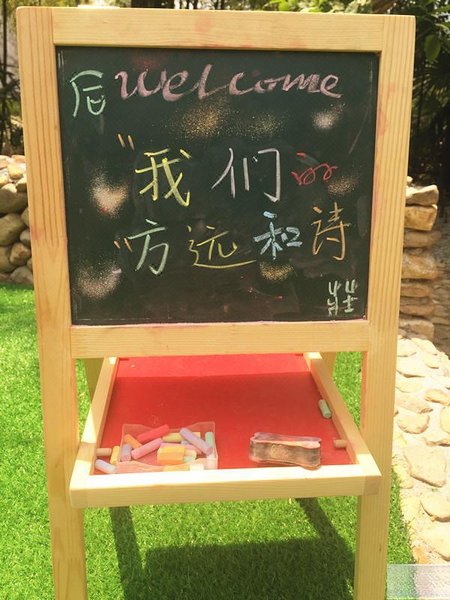 后 welcome
"我们
"方远和诗